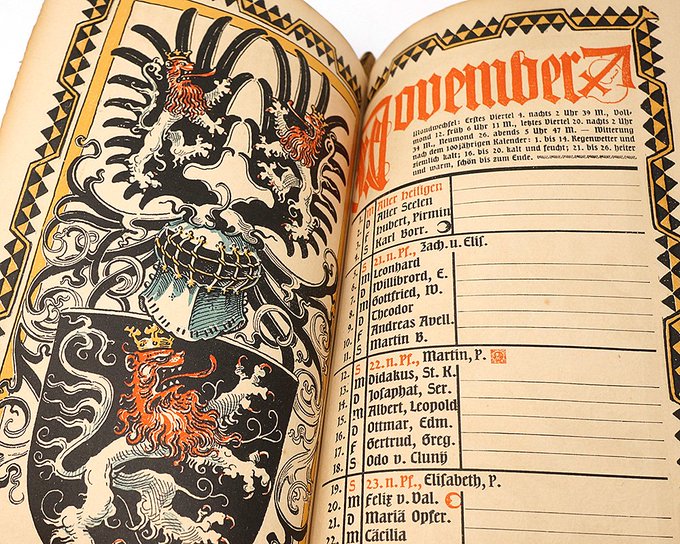 November
Mondwechsel: Erstes Viertel 4. nachts 2 Uhr 39 M., Voll-
mond 12. früh 6 Uhr 11 M., letztes Viertel 20. nachts 2 Uhr
M., Neumond 26. abends 5 Uhr 47 M. — Witterung
nach dem 100jährigen Kalender: 1. bis 14. Regenwetter und
ziemlich kalt; 16. bis 20. kalt und feucht; 21. bis 26. heiter
und warm, schön bis zum Ende.
1. M Aller Heiligen
2. D Aller Seelen
3. F Hubert, Pirmin
4. S Karl Borr.
5. S 21. n. Pf., Zach. u. Elis.
6. M Leonhard
7. D Willibrord, E.
8. M Gottfried, W.
9. D Theodor
10. F Andreas Avell.
11. S Martin B.
12. S 22. n. Pf., Martin, P.
13. M Didakus, St. K.
14. D Josaphat, Ser.
15. M Albert, Leopold
16. D Ottmar, Edm.
17. F Gertrud, Greg.
18. S Odo v. Cluny
19. S 23. n. Pf., Elisabeth, P.
20. M Felix v. Val.
21. D Mariä Opfer.
22. M Cäcilia